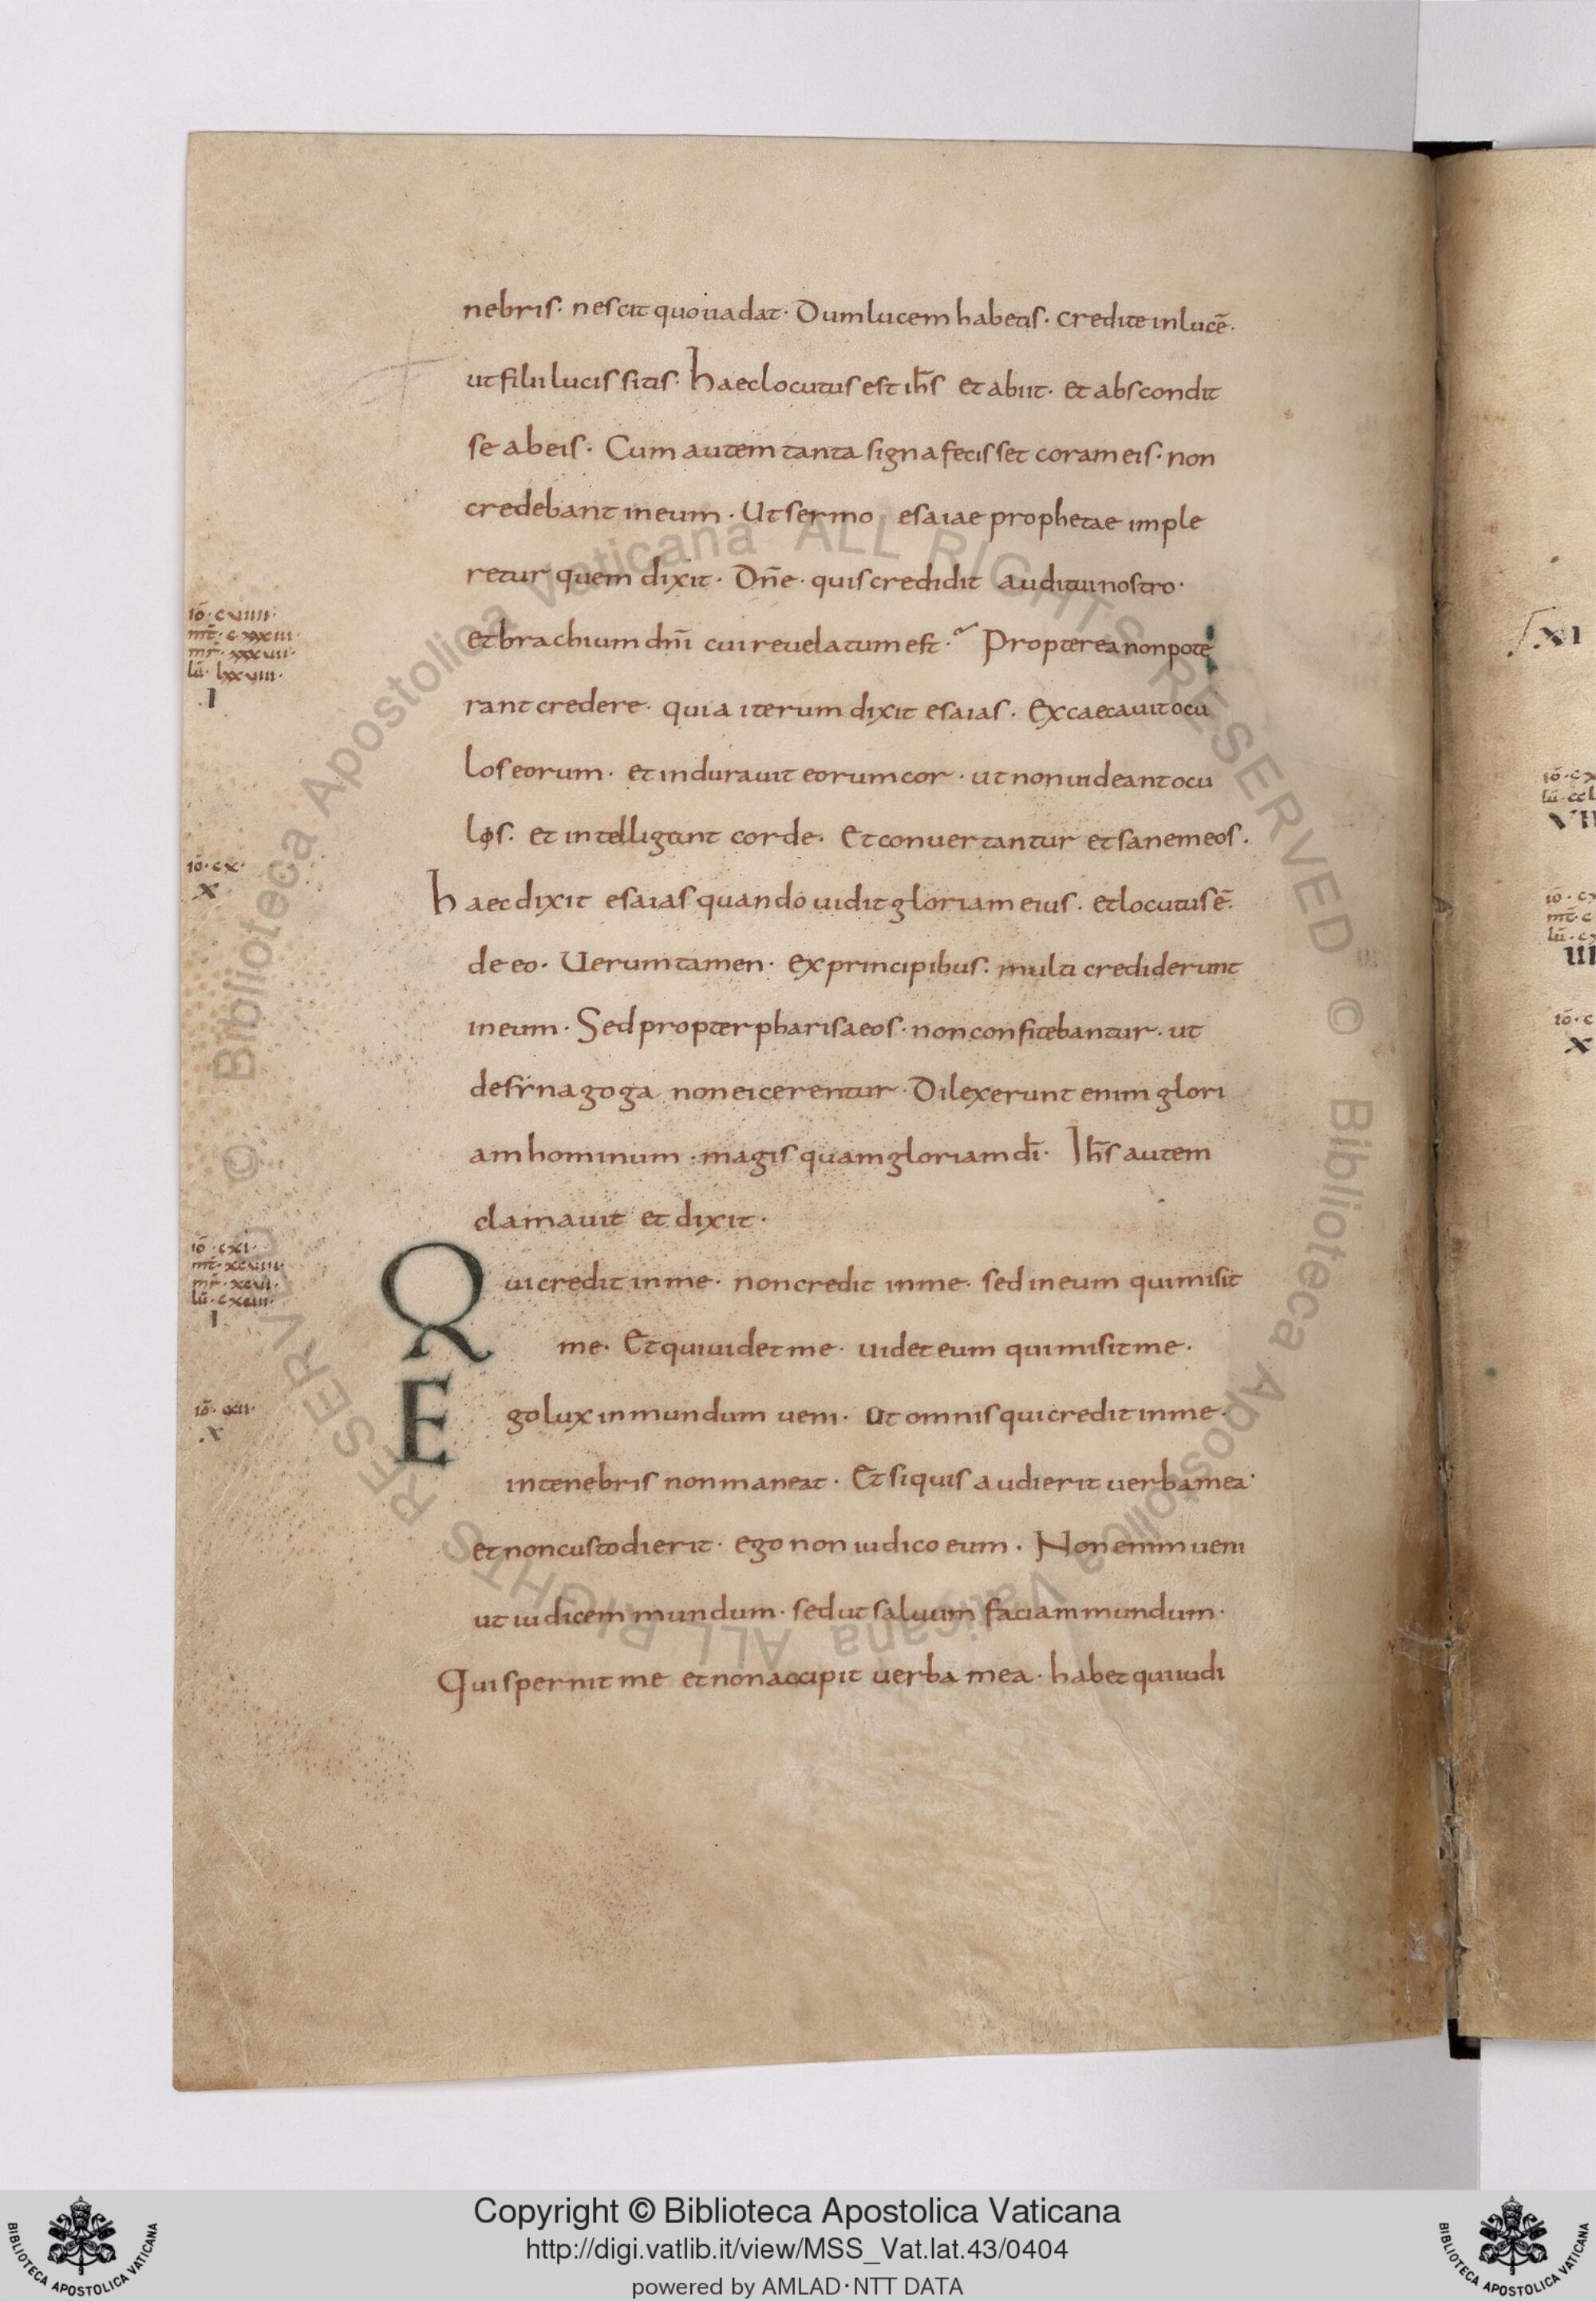 nebris· nescit quo uadat· Dum lucem habetis· credite in lucē·
ut filii lucis sitis· haec locutus est ih̄s et abiit· et abscondit
se ab eis· Cum autem tanta signa fecisset coram eis· non
credebant in eum· Ut sermo esaiae prophetae imple
retur quem dixit· Dn̄e· quis credidit auditui nostro·
et brachium dn̄i cui reuelatum est· Propterea non pote
rant credere· quia iterum dixit esaias· excaecauit ocu
los eorum· et indurauit eorum cor· ut non uideant ocu
los· et intelligant corde· Et conuertantur et sanem eos·
haec dixit esaias quando uidit gloriam eius· et locutus ē·
de eo· Uerum tamen· ex principibus· multi crediderunt
in eum· Sed propter pharisaeos· non confitebantur· ut
de synagoga non eicerentur· Dilexerunt enim glori
am hominum· magis quam gloriam dī· Ih̄s autem
clamauit et dixit·
Qui credit in me· non credit in me· sed in eum qui misit
me· Et qui uidet me· uidet eum qui misit me·
Ego lux in mundum ueni· ut omnis qui credit in me·
in tenebris non maneat· Et si quis audierit uerba mea·
et non custodierit· ego non iudico eum· Non enim ueni
ut iudicem mundum· sed ut saluum faciam mundum·
Qui spernit me et non accipit uerba mea· habet qui iudi
iō· cuiiii·
mt̄· cxxxiii·
mr̄· xxxuii·
lū· lxxuiii·
I
iō· cx·
X
iō· cxi·
mt̄· xcuiii·
mr̄· xcui·
lū· cxuii·
I
iō· cxii·
X
XI
© Biblioteca Apostolica Vaticana ALL RIGHTS RESERVED © Biblioteca Apostolica Vaticana ALL RIGHTS RESERVED
Copyright © Biblioteca Apostolica Vaticana
http://digi.vatlib.it/view/MSS_Vat.lat.43/0404
powered by AMLAD·NTT DATA
BIBLIOTECA APOSTOLICA VATICANA
BIBLIOTECA APOSTOLICA VATICANA